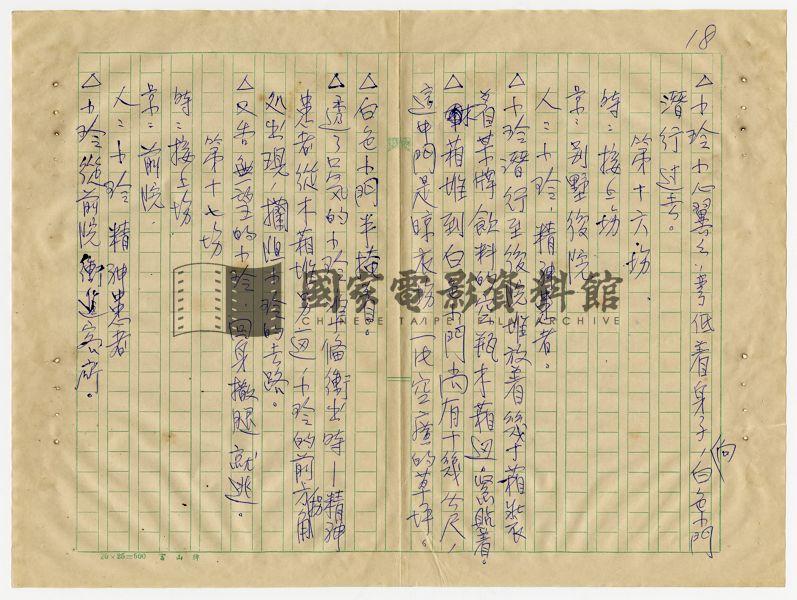 18
△小玲小心翼々,弯低着身子,向白色小門
潛行过去。
第十六場
時:接上場
景:別墅後院
人:小玲,精神患者。
△小玲潛行至後院堆放着幾十箱裝
着某牌飲料的空瓶木箱边,緊貼着。
△木箱堆到白色小門尚有十幾公尺,
這中間是晾衣場 一片空曠的草坪。
△白色小門半掩着。
△透了口気的小玲,準備衝出時—精神
患者從木箱堆另一边,小玲的前方拐角
処出現,攔阻小玲的去路。
△又告無望的小玲,回身撒腿就逃。
第十七場
時:接上場
景:前院.
人:小玲 精神患者
△小玲從前院衝進客廳。
國家電影資料館
CHINESE TAIPEI FILM ARCHIVE